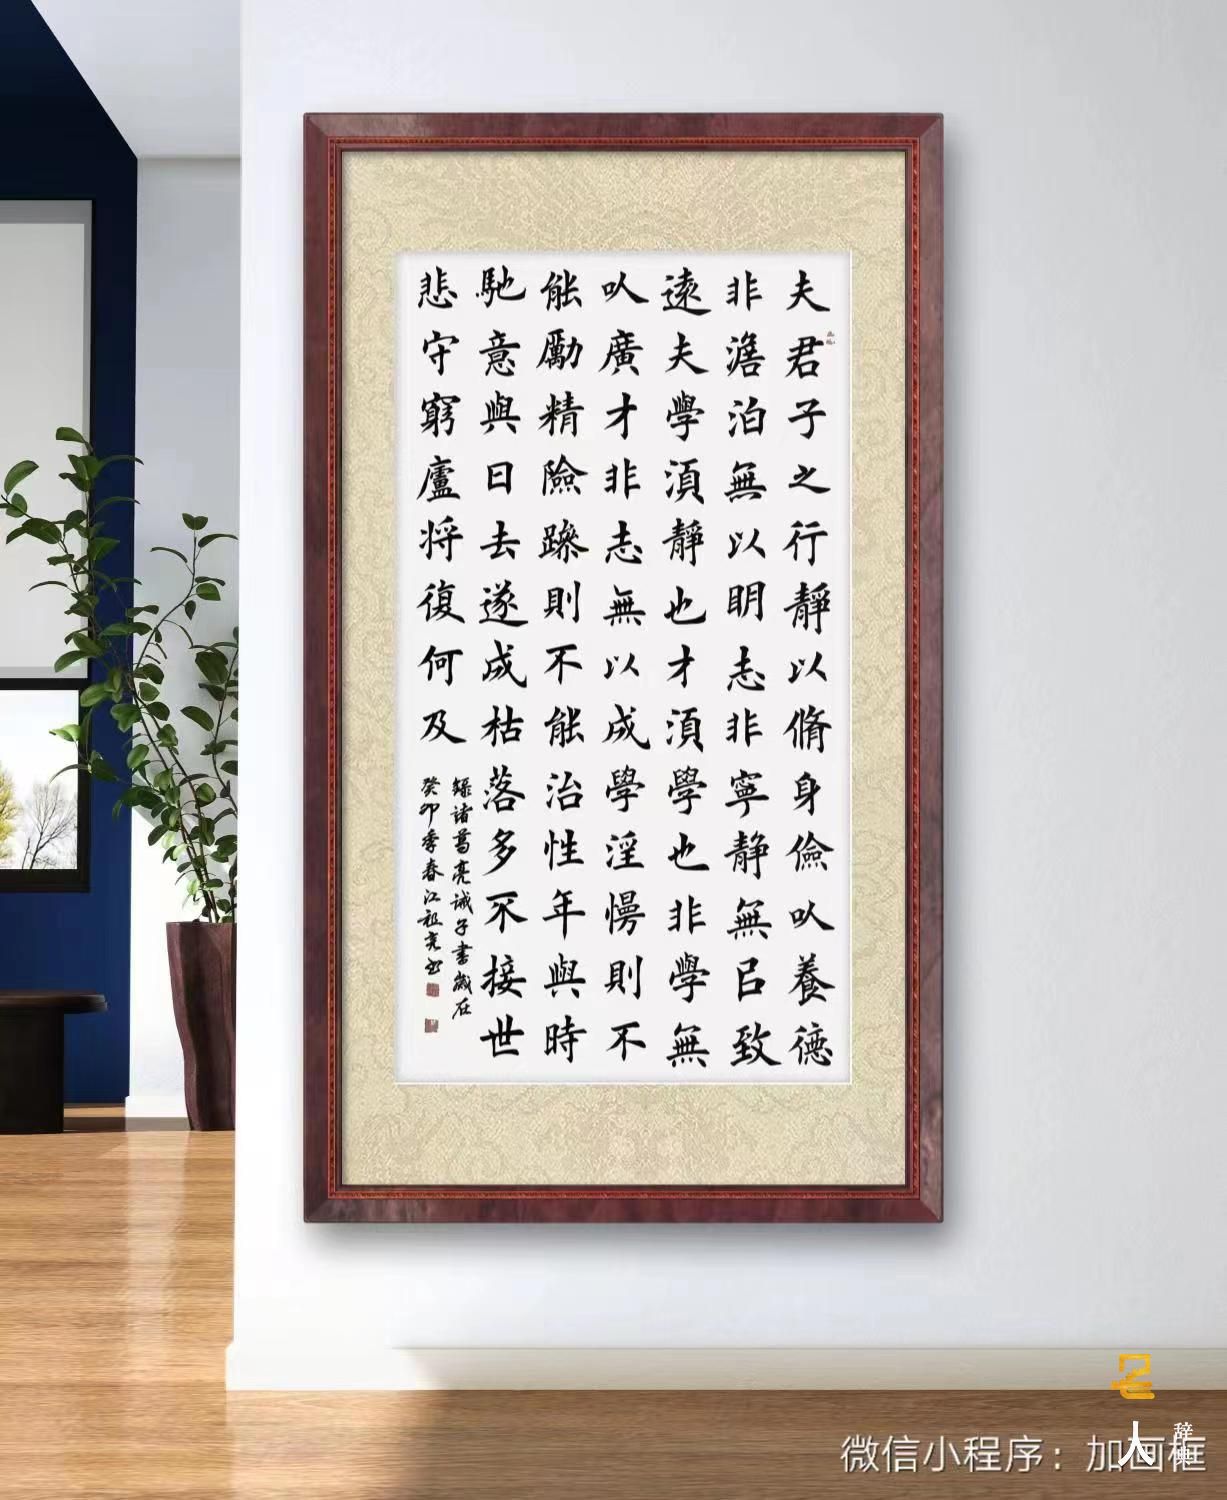 夫君子之行靜以脩身儉㕥養德
非澹泊無以明志非寧靜無㠯致
遠夫學須靜也才須學也非學無
㕥廣才非志無以成學淫慢則不
能勵精險躁則不能治性年與時
馳意與日去遂成枯落多不接世
悲守窮廬将復何及
録諸葛亮诫子書歲在
癸卯季春江祖亮书
名人
辞典
微信小程序：加画框